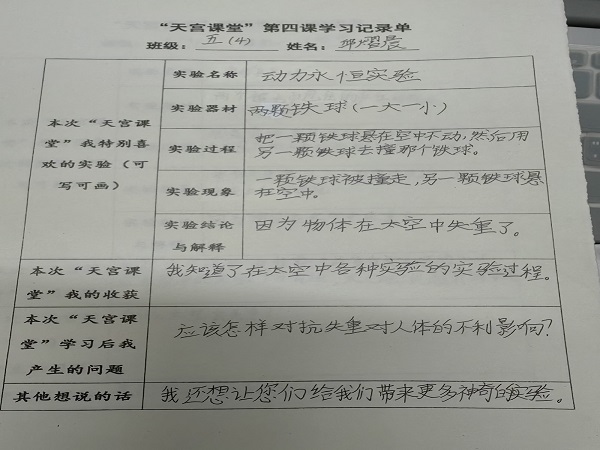 “天宫课堂”第四课学习记录单
班级：五(4) 姓名：邓熠晨
本次“天宫课
堂”我特别喜
欢的实验（可
写可画）
实验名称 动力永恒实验
实验器材 两颗铁球(一大一小)
实验过程 把一颗铁球悬在空中不动,然后用
另一颗铁球去撞那个铁球。
实验现象 一颗铁球被撞走,另一颗铁球悬
在空中。
实验结论
与解释 因为物体在太空中失重了。
本次“天宫课
堂”我的收获 我知道了在太空中各种实验的实验过程。
本次“天宫课
堂”学习后我
产生的问题 应该怎样对抗失重对人体的不利影响?
其他想说的话 我还想让您们给我们带来更多神奇的实验。